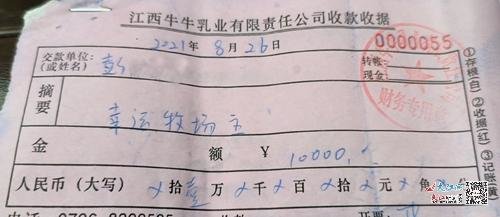 江西牛牛乳业有限责任公司收款收据
2021年8月26日 0000055
交款单位：
（或姓名）彭
转帐：
现金：
财务专用章
摘要 幸运牧场主
金额 ¥ 10000.
人民币（大写）×拾壹万×千×百×拾×元×角
①存根（白）②收据（红）③记账